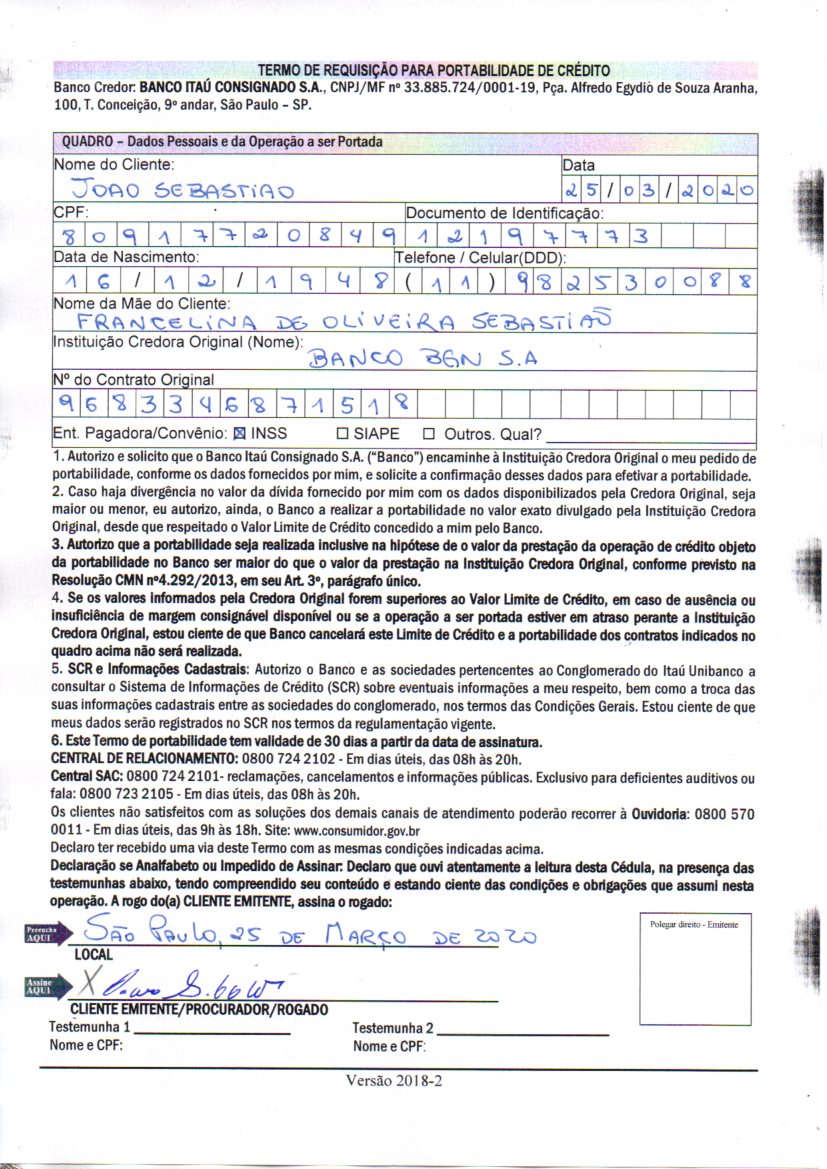 TERMO DE REQUISIÇÃO PARA PORTABILIDADE DE CRÉDITO
Banco Credor: BANCO ITAÚ CONSIGNADO S.A., CNPJ/MF nº 33.885.724/0001-19, Pça. Alfredo Egydio de Souza Aranha,
100, T. Conceição, 9º andar, São Paulo – SP.
QUADRO – Dados Pessoais e da Operação a ser Portada
Nome do Cliente: Data
JOAO SEBASTIAO 25/03/2020
CPF: Documento de Identificação:
80917720849 12197773
Data de Nascimento: Telefone / Celular(DDD):
16/12/1948 (11) 982530088
Nome da Mãe do Cliente:
FRANCELINA DE OLIVEIRA SEBASTIAÕ
Instituição Credora Original (Nome):
BANCO BGN S.A
Nº do Contrato Original
9683346871518
Ent. Pagadora/Convênio: ☒ INSS ☐ SIAPE ☐ Outros. Qual?
1. Autorizo e solicito que o Banco Itaú Consignado S.A. (“Banco”) encaminhe à Instituição Credora Original o meu pedido de
portabilidade, conforme os dados fornecidos por mim, e solicite a confirmação desses dados para efetivar a portabilidade.
2. Caso haja divergência no valor da dívida fornecido por mim com os dados disponibilizados pela Credora Original, seja
maior ou menor, eu autorizo, ainda, o Banco a realizar a portabilidade no valor exato divulgado pela Instituição Credora
Original, desde que respeitado o Valor Limite de Crédito concedido a mim pelo Banco.
3. Autorizo que a portabilidade seja realizada inclusive na hipótese de o valor da prestação da operação de crédito objeto
da portabilidade no Banco ser maior do que o valor da prestação na Instituição Credora Original, conforme previsto na
Resolução CMN nº4.292/2013, em seu Art. 3º, parágrafo único.
4. Se os valores informados pela Credora Original forem superiores ao Valor Limite de Crédito, em caso de ausência ou
insuficiência de margem consignável disponível ou se a operação a ser portada estiver em atraso perante a Instituição
Credora Original, estou ciente de que Banco cancelará este Limite de Crédito e a portabilidade dos contratos indicados no
quadro acima não será realizada.
5. SCR e Informações Cadastrais: Autorizo o Banco e as sociedades pertencentes ao Conglomerado do Itaú Unibanco a
consultar o Sistema de Informações de Crédito (SCR) sobre eventuais informações a meu respeito, bem como a troca das
suas informações cadastrais entre as sociedades do conglomerado, nos termos das Condições Gerais. Estou ciente de que
meus dados serão registrados no SCR nos termos da regulamentação vigente.
6. Este Termo de portabilidade tem validade de 30 dias a partir da data de assinatura.
CENTRAL DE RELACIONAMENTO: 0800 724 2102 - Em dias úteis, das 08h às 20h.
Central SAC: 0800 724 2101- reclamações, cancelamentos e informações públicas. Exclusivo para deficientes auditivos ou
fala: 0800 723 2105 - Em dias úteis, das 08h às 20h.
Os clientes não satisfeitos com as soluções dos demais canais de atendimento poderão recorrer à Ouvidoria: 0800 570
0011 - Em dias úteis, das 9h às 18h. Site: www.consumidor.gov.br
Declaro ter recebido uma via deste Termo com as mesmas condições indicadas acima.
Declaração se Analfabeto ou Impedido de Assinar: Declaro que ouvi atentamente a leitura desta Cédula, na presença das
testemunhas abaixo, tendo compreendido seu conteúdo e estando ciente das condições e obrigações que assumi nesta
operação. A rogo do(a) CLIENTE EMITENTE, assina o rogado:
Preencha AQUI SÃO PAULO, 25 DE MARÇO DE 2020
LOCAL
Polegar direito - Emitente
Assine AQUI X
CLIENTE EMITENTE/PROCURADOR/ROGADO
Testemunha 1 Testemunha 2
Nome e CPF: Nome e CPF:
Versão 2018-2